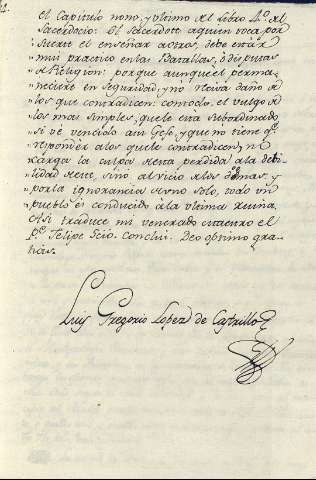 el Capitulo nono, y vltimo del Libro 4.º del
Sacerdocio: El Sacerdote aquien toca por
Suerte el enseñar aotros, debe estar
mui practico en las Batallas, ò disputas
de Religion: porque aunque el perma-
neciere en Seguridad, y nò reciva daño de
los que contradicen: con todo, el vulgo de
los mas simples, que le esta subordinado
si vè vencido aun Gefe, y que no tiene q.e
responder alos que le contradicen, nò
carga la culpa desta perdida ala debi-
lidad de este, sinò al vicio de los dogmas: y
por la ignorancia de uno solo, todo un
pueblo es conducido à la vltima ruina.
Asi traduce mi venerado Maestro el
P.e Felipe Scio. Conclui. Deo optimo gra-
tias.
Luis Gregorio Lopez de Castrillo